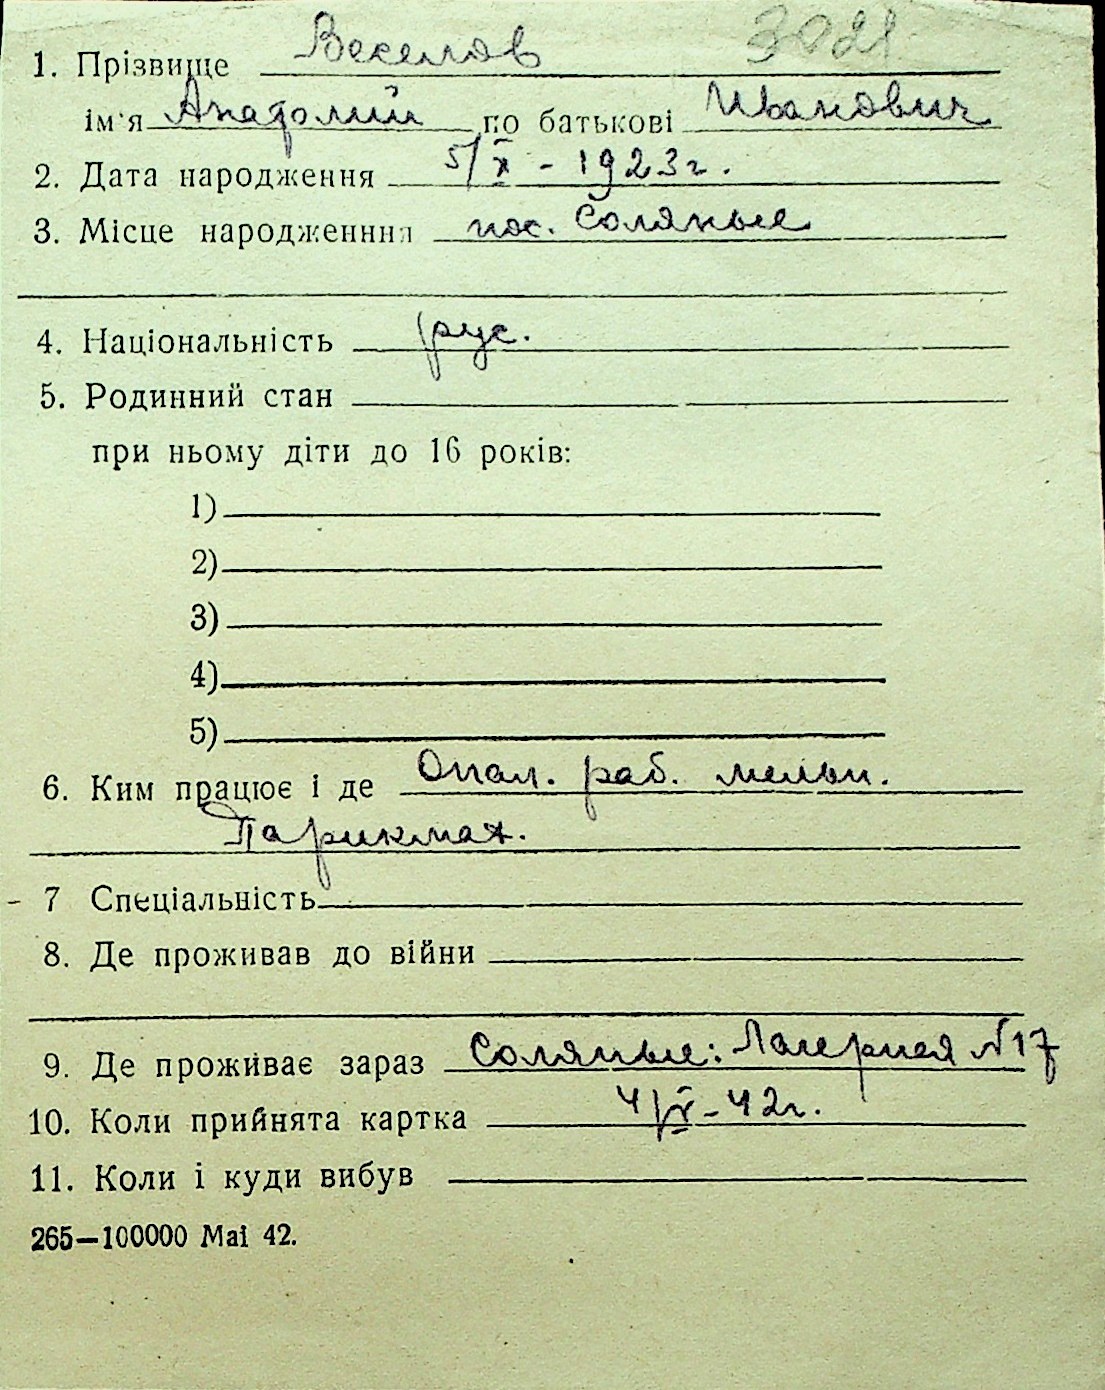 3021
1. Прізвище Веселов
ім'я Анатолий по батькові Иванович
2. Дата народження 5/X - 1923г.
3. Місце народженння пос. Соляные
4. Національність рус.
5. Родинний стан
при ньому діти до 16 років:
1)
2)
3)
4)
5)
6. Ким працює і де раб. мельн.
Парикмах.
- 7 Спеціальність
8. Де проживав до війни
9. Де проживає зараз Соляные: Лагерная №17
10. Коли прийнята картка 42г.
11. Коли і куди вибув
265—100000 Mai 42.